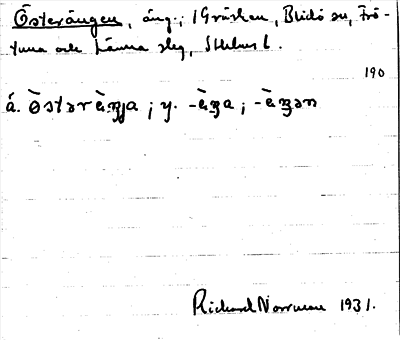 Österängen, äng; i Gräskan, Blidö sn, Frö-
tuna och Länna slg, Sthlms l.
190
á. Östəræ̀ŋja; y. -æ̀ŋa; -æ̀ŋən
Rickard Norrman 1931.